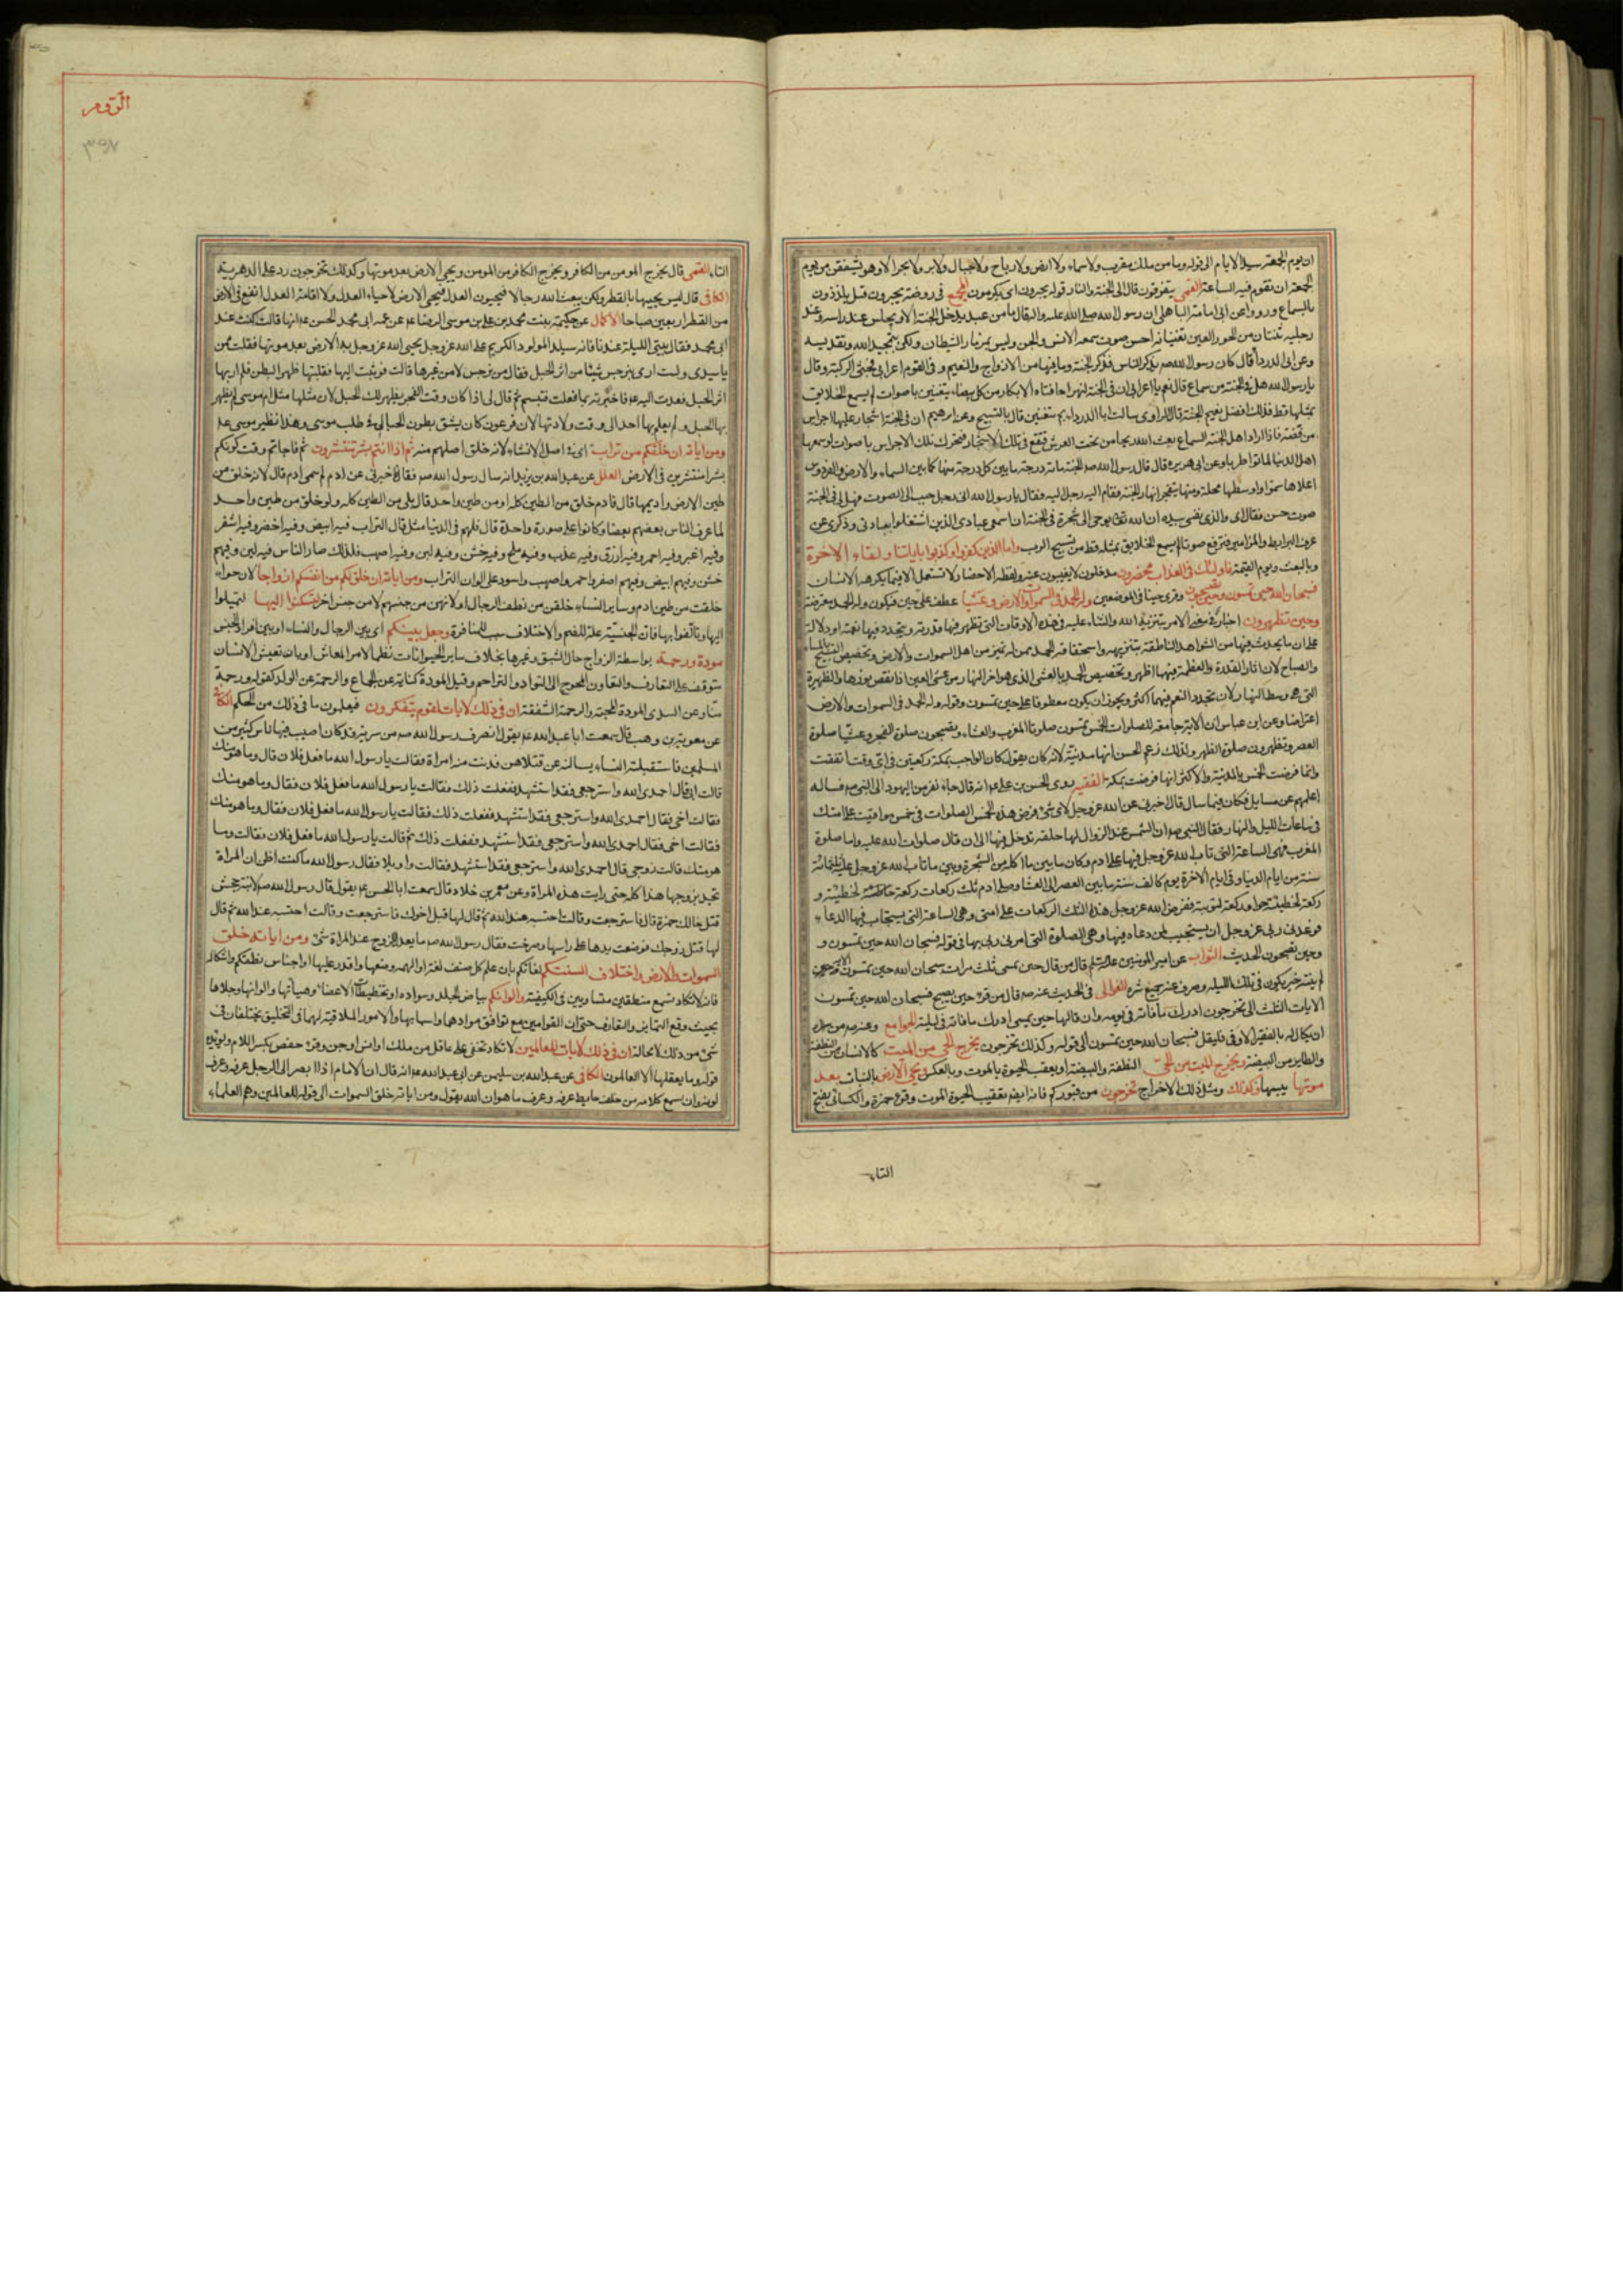 ان يوم الجمعة سيد الايام الى قوله وما من ملك مقرب ولا سماء ولا ارض ولا رياح ولا جبال ولا بر ولا بحر الا وهو يشفقن من يوم
الجمعة ان تقوم فيه الساعة القمى يتفرقون قال الى الجنة والنار قوله يحبرون اى يكرمون المجمع فى روضة يحبرون قيل يلذذون
بالسماع ورووا عن ابى امامة الباهلى ان رسول الله صلى الله عليه واله قال ما من عبد يدخل الجنة الا ويجلس عند راسه وعند
رجليه ثنتان من الحور العين تغنيانه احسن صوت سمعه الانس والجن وليس بمزمار الشيطان ولكن بتمجيد الله وتقديسه
وعن ابى الدرداء قال كان رسول الله ص يذكر الناس فذكر الجنة وما فيها من الازواج والنعيم وفى القوم اعرابى فجثى لركبته وقال
يا رسول الله هل فى الجنة من سماع قال نعم يا اعرابى ان فى الجنة لنهرا حافتاه الابكار من كل بيضاء يتغنين باصوات لم يسمع الخلايق
بمثلها قط فذلك افضل نعيم الجنة قال الراوى سالت ابا الدرداء بم يتغنين قال بالتسبيح وعن ابرهيم ان فى الجنة اشجار عليها اجراس
من فضة فاذا اراد اهل الجنة السماع بعث الله ريحا من تحت العرش فتقع فى تلك الاشجار فتحرك تلك الاجراس باصوات لو سمعها
اهل الدنيا لماتوا طربا وعن ابى هريره قال قال رسول الله ص الجنة مائة درجة ما بين كل درجة منها كما بين السماء والارض والفردوس
اعلاها سموا واوسطها محلة ومنها يتفجر انهار الجنة فقام اليه رجل اليه فقال يا رسول الله انى رجل حبب الى الصوت فهل فى الجنة
صوت حسن فقال اى والذى نفسى بيده ان الله تعالى يوحى الى شجرة فى الجنة ان اسمعى عبادى الذين اشتغلوا بعبادتى وذكرى عن
عزف البرابط والمزامير فترفع صوتا لم يسمع الخلايق بمثله قط من تسبيح الرب واما الذين كفروا وكذبوا باياتنا ولقاء الاخرة
وبالبعث ويوم القيمة فاولئك فى العذاب محضرون مدخلون لا يغيبون عنه ولفظة الاحضار لا تستعمل الا فيما يكرهه الانسان
فسبحان الله حين تمسون وحين تصبحون وقرى حينا فى الموضعين وله الحمد فى السموات والارض وعشيا عطف على حين فيكون وله الحمد معترضة
وحين تظهرون اخبار فى معنى الامر بتنزيه الله والثناء عليه فى هذه الاوقات التى تظهر فيها قدرته ويتجدد فيها نعمته او دلالة
على ان ما يحدث فيها من الشواهد الناطقة بتنزيهه واستحقاقه الحمد ممن له تميز من اهل السموات والارض وتخصيص التسبيح بالمساء
والصباح لان اثار القدرة والعظمة فيهما اظهر وتخصيص الحمد بالعشى الذى هو اخر النهار من عشى العين اذا نقص نورها والظهيرة
التى هى وسط النهار لان تجدد النعم فيهما اكثر ويجوز ان يكون معطوفا على حين تمسون وقوله وله الحمد فى السموات والارض
اعتراضا وعن ابن عباس ان الاية جامعة للصلوات الخمس تمسون صلوتا المغرب والعشاء وتصبحون صلوة الفجر وعشيا صلوة
العصر وتظهرون صلوة الظهر ولذلك زعم الحسن انها مدنية لانه كان يقول كان الواجب بمكة ركعتين فى اى وقت اتفقت
وانما فرضت الخمس بالمدينة والاكثر انها فرضت بمكة الفقيه روى الحسن بن على عه انه قال جاء نفر من اليهود الى النبى ص فساله
اعلمهم عن مسايل فكان فيما سال قال اخبرنى عن الله عز وجل لاى شئ فرض هذه الخمس الصلوات فى خمس مواقيت على امتك
فى ساعات الليل والنهار فقال النبى ص ان الشمس عند الزوال لها حلقة تدخل فيها الى ان قال صلوات الله عليه واما صلوة
المغرب فهى الساعة التى تاب الله عز وجل فيها على ادم وكان ما بين ما اكل من الشجرة وبين ما تاب الله عز وجل عليه ثلثمائة
سنة من ايام الدنيا وفى ايام الاخرة يوم كالف سنة ما بين العصر الى العشا وصلى ادم ثلث ركعات ركعة لخطيئته و
ركعة لخطيئة حوا وركعة لتوبته ففرض الله عز وجل هذه الثلث الركعات على امتى وهى الساعة التى يستجاب فيها الدعاء
فوعدنى ربى عز وجل ان يستجيب لمن دعاه فيها وهى الصلوة التى امرنى ربى بها فى قوله فسبحان الله حين تمسون و
وحين تصبحون الحديث الثواب عن امير المومنين عليه السلم قال من قال حين يمسى ثلث مرات سبحان الله حين تمسون
لم يفته خير يكون فى تلك الليله وصرف عنه جميع شره الغوالى فى الحديث عنه ص قال من قرء حين يصبح فسبحان الله حين تمسون
الايات الثلث الى تخرجون ادرك ما فاته فى يومه وان قالها حين يمسى ادرك ما فاته فى ليلته الجوامع وعنه ص من سره
ان يكال له بالقفيز الاوفى فليقل فسبحان الله حين تمسون الى قوله وكذلك تخرجون يخرج الحى من الميت كالانسان من النطفة
والطاير من البيضة ويخرج الميت من الحى النطفة والبيضة او يعقب الحيوة بالموت وبالعكس ويحى الارض بالنبات بعد
موتها يبسها وكذلك ومثل ذلك الاخراج تخرجون من قبوركم فانه ايضا تعقيب الحيوة الموت وقرء حمزة والكسائى بفتح
التاء
الروم
٣٩٧
التاء القمى قال يخرج المومن من الكافر ويخرج الكافر من المومن ويحى الارض بعد موتها وكذلك تخرجون رد على الدهرية
الكافى قال ليس يحييها بالقطر ولكن يبعث الله رجالا فيحيون العدل فتحيى الارض لاحياء العدل ولاقامة العدل انفع فى الارض
من القطر اربعين صباحا الاكمال عن حكيمة بنت محمد بن على بن موسى الرضا عه عن عمه ابى محمد الحسن عه انها قالت كنت عند
ابى محمد فقال بيتى الليلة عندنا فانه سيلد المولود الكريم على الله عز وجل يحيى الله عز وجل به الارض بعد موتها فقلت ممن
يا سيدى ولست ارى بنرجس شيئا من اثر الحبل فقال من نرجس لا من غيرها قالت فوثبت اليها فقلبتها ظهر البطن فلم ار بها
اثر الحبل فعدت اليه عه فاخبرته بما فعلت فتبسم ثم قال لى اذا كان وقت الفجر يظهر لك الحبل لان مثلها مثل ام موسى لم يظهر
بها الحبل ولم يعلم بها احد الى وقت ولادتها لان فرعون كان يشق بطون الحبالى فى طلب موسى وهذا نظير موسى عه
ومن اياته ان خلقكم من تراب اى فى اصل الانشاء لانه خلق اصلهم منه ثم اذا انتم بشر تنتشرون ثم فاجاتم وقت كونكم
بشرا منتشرين فى الارض العلل عن عبد الله بن يزيد انه سال رسول الله ص فقال اخبرنى عن ادم لم سمى ادم قال لانه خلق من
طين الارض واديمها قال فادم خلق من الطين كله او من طين واحد قال بلى من الطين كله ولو خلق من طين واحد
لما عرف الناس بعضهم بعضا وكانوا على صورة واحدة قال فلهم فى الدنيا مثل قال التراب فيه ابيض وفيه اخضر وفيه اشقر
وفيه اغبر وفيه احمر وفيه ازرق وفيه عذب وفيه ملح وفيه خشن وفيه لين وفيه اصهب فلذلك صار الناس فيهم لين وفيهم
خشن وفيهم ابيض وفيهم اصفر واحمر واصهب واسود على الوان التراب ومن اياته ان خلق لكم من انفسكم ازواجا لان حواء
خلقت من طين ادم وساير النساء خلقن من نطف الرجال او لانهن من جنسهم لا من جنس اخر لتسكنوا اليها لتميلوا
اليها وتالفوا بها فان الجنسية علة للضم والاختلاف سبب للمنافرة وجعل بينكم اى بين الرجال والنساء او بين افراد الجنس
مودة ورحمة بواسطة الزواج حال الشبق وغيرها بخلاف ساير الحيوانات نظما لامر المعاش او بان تعيش الانسان
متوقف على التعارف والتعاون المحوج الى التواد والتراحم وقيل المودة كناية عن الجماع والرحمة عن الولد كقوله ورحمة
منا وعن السدى المودة المحبة والرحمة الشفقة ان فى ذلك لايات لقوم يتفكرون فيعلمون ما فى ذلك من الحكم الكافى
عن معوية بن وهب قال سمعت ابا عبد الله عه يقول انصرف رسول الله ص من سرية قد كان اصيب فيها ناس كثير من
المسلمين فاستقبلته النساء يسالنه عن قتلاهن فدنت منه امراة فقالت يا رسول الله ما فعل فلان قال وما هو منك
قالت ابى قال احمدى الله واسترجعى فقد استشهد ففعلت ذلك فقالت يا رسول الله ما فعل فلان فقال وما هو منك
فقالت اخى فقال احمدى الله واسترجعى فقد استشهد ففعلت ذلك فقالت يا رسول الله ما فعل فلان فقال وما هو منك
فقالت اخى فقال احمدى الله واسترجعى فقد استشهد ففعلت ذلك ثم قالت يا رسول الله ما فعل فلان فقالت وما
هو منك قالت زوجى قال احمدى الله واسترجعى فقد استشهد فقالت واويلا فقال رسول الله ما كنت اظن ان المراة
تجد بزوجها هذا كله حتى رايت هذه المراة وعن معمر بن خلاد قال سمعت ابا الحسن عه يقول قال رسول الله ص لابنة جحش
قتل خالك حمزة قال فاسترجعت وقالت احتسبه عند الله ثم قال لها قتل اخوك فاسترجعت وقالت احتسبه عند الله ثم قال
لها قتل زوجك فوضعت يدها على راسها وصرخت فقال رسول الله ص ما يعدل الزوج عند المراة شئ ومن اياته خلق
السموات والارض واختلاف السنتكم لغاتكم بان علم كل صنف لغته او الهمه وضعها واقدر عليها او اجناس نطقكم واشكاله
فانه لا تكاد تسمع منطقين متساويين فى الكيفية والوانكم بياض الجلد وسواده او تخطيطات الاعضاء وهيئاتها والوانها وحلاها
بحيث وقع التمايز والتعارف حتى ان التوامين مع توافق موادهما واسبابهما والامور الملاقية لهما فى التخليق يختلفان فى
شئ من ذلك لا محالة ان فى ذلك لايات للعالمين لا تكاد تخفى على عاقل من ملك او انس او جن وقرء حفص بكسر اللام ويؤيده
قوله وما يعقلها الا العالمون الكافى عن عبد الله بن سليمن عن ابى عبد الله عه انه قال ان الامام اذا ابصر الى الرجل عرفه وعرف
لونه وان سمع كلامه من خلف حايط عرفه وعرف ما هو ان الله يقول ومن اياته خلق السموات الى قوله للعالمين وهم العلماء